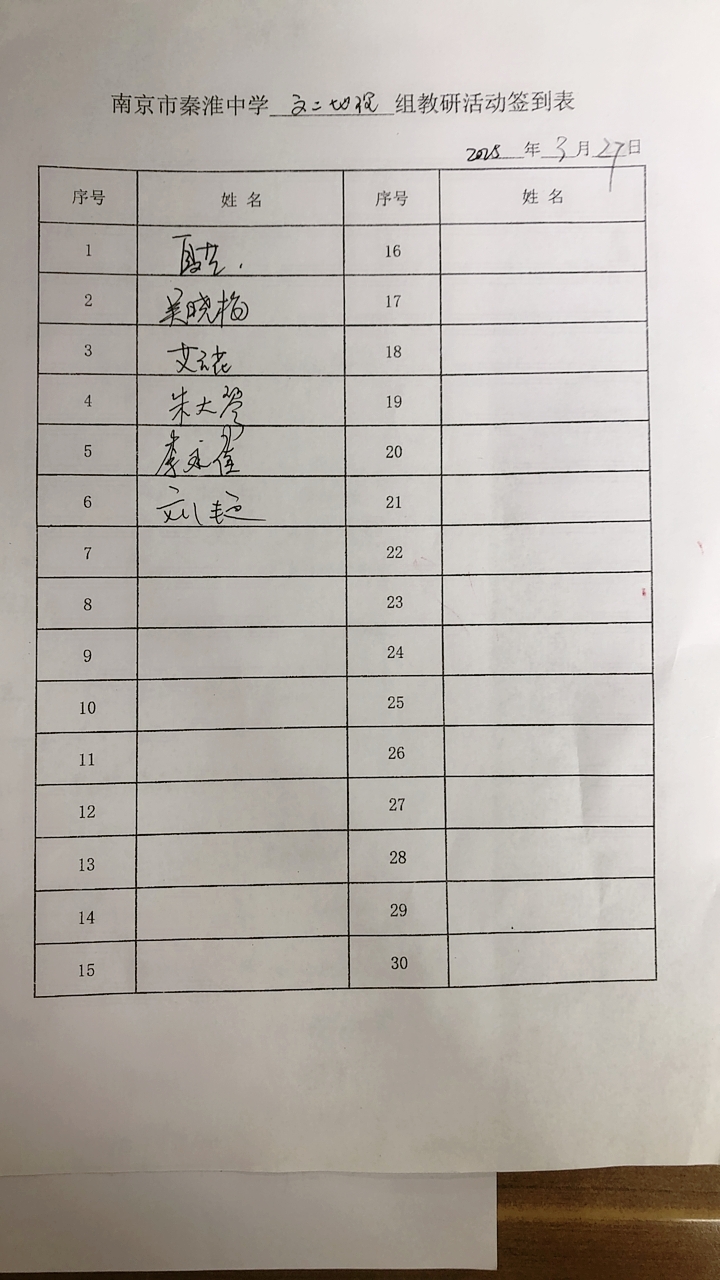 南京市秦淮中学 高二地理 组教研活动签到表
2025 年 3 月 27 日
序号 姓 名 序号 姓 名
1 16
2 吴晓梅 17
3 18
4 朱大琴 19
5 20
6 刘艳 21
7 22
8 23
9 24
10 25
11 26
12 27
13 28
14 29
15 30